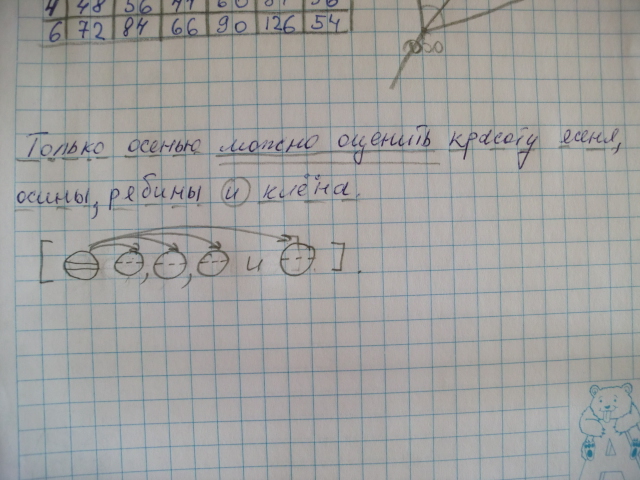 4 48 56 44 60 84 36
6 72 84 66 90 126 54
Только осенью можно оценить красоту ясеня,
осины, рябины и клёна.
[ , , и ].